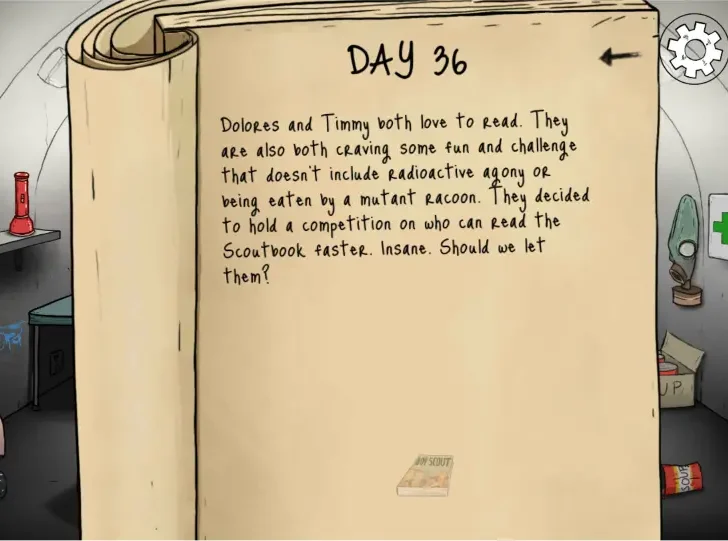 DAY 36
Dolores and Timmy both love to read. They
are also both craving some fun and challenge
that doesn't include radioactive agony or
being eaten by a mutant racoon. They decided
to hold a competition on who can read the
Scoutbook faster. Insane. Should we let
them?
SCOUT
UP
SOUP